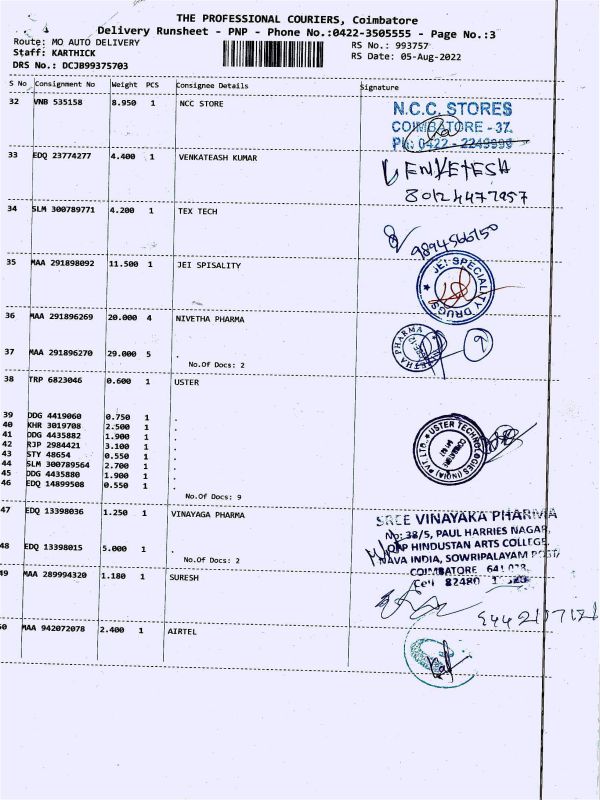 THE PROFESSIONAL COURIERS, Coimbatore
Delivery Runsheet - PNP - Phone No.:0422-3505555 - Page No.:3
Route: MO AUTO DELIVERY
RS No.: 993757
Staff: KARTHICK
RS Date: 05-Aug-2022
DRS No.: DCJB99375703
S No Consignment No Weight PCS Consignee Details Signature
32 VNB 535158 8.950 1 NCC STORE
N.C.C. STORES
COIMBATORE - 37.
Ph: 0422 - 2249999
33 EDQ 23774277 4.400 1 VENKATEASH KUMAR
VENKETESH
80124477957
34 SLM 300789771 4.200 1 TEX TECH
9894566150
35 MAA 291898092 11.500 1 JEI SPISALITY
JEI SPECIALITY DRUGS
36 MAA 291896269 20.000 4 NIVETHA PHARMA
37 MAA 291896270 29.000 5 .
No.Of Docs: 2
38 TRP 6823046 0.600 1 USTER
USTER TECHNOLOGIES (INDIA) PVT. LTD.
39 DDG 4419060 0.750 1 .
40 KHR 3019708 2.500 1 .
41 DDG 4435882 1.900 1 .
42 RJP 2984421 3.100 1 .
43 STY 48654 0.550 1 .
44 SLM 300789564 2.700 1 .
45 DDG 4435880 1.900 1 .
46 EDQ 14899508 0.550 1 .
No.Of Docs: 9
47 EDQ 13398036 1.250 1 VINAYAGA PHARMA
SREE VINAYAKA PHARMA
No: 38/5, PAUL HARRIES NAGAR,
OPP HINDUSTAN ARTS COLLEGE
NAVA INDIA, SOWRIPALAYAM POST
COIMBATORE 641 028.
Cell 82480
48 EDQ 13398015 5.000 1 .
No.Of Docs: 2
49 MAA 289994320 1.180 1 SURESH
50 MAA 942072078 2.400 1 AIRTEL